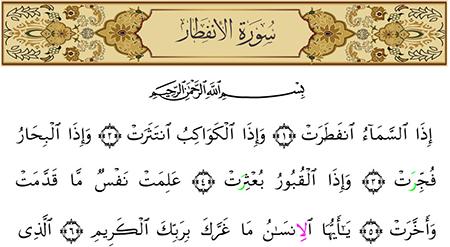 سُورَةُ الانفِطَارِ
بِسْمِ اللَّهِ الرَّحْمَٰنِ الرَّحِيمِ
إِذَا السَّمَآءُ انفَطَرَتْ ﴿١﴾ وَإِذَا الْكَوَاكِبُ انتَثَرَتْ ﴿٢﴾ وَإِذَا الْبِحَارُ
فُجِّرَتْ ﴿٣﴾ وَإِذَا الْقُبُورُ بُعْثِرَتْ ﴿٤﴾ عَلِمَتْ نَفْسٌ مَّا قَدَّمَتْ
وَأَخَّرَتْ ﴿٥﴾ يَٰٓأَيُّهَا الْإِنسَٰنُ مَا غَرَّكَ بِرَبِّكَ الْكَرِيمِ ﴿٦﴾ الَّذِى